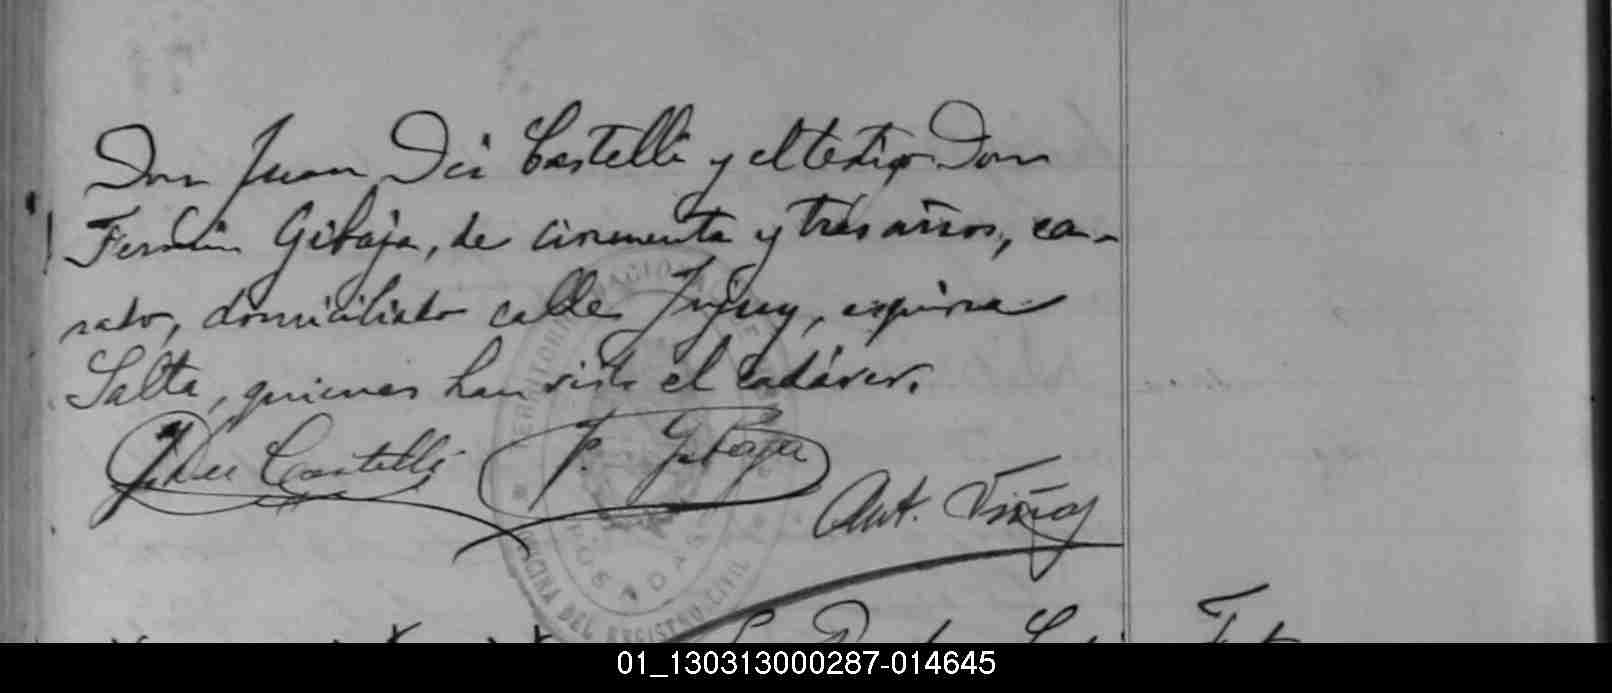 Don Juan Dei Castelli y el testigo Don
Fermín Gibaja, de cincuenta y tres años, ca-
sado, domiciliado calle Jujuy, esquina
Salta, quienes han visto el cadáver.
J Dei Castelli F. Gibaja
Ant. Viñas
TERRITORIO NACIONAL
POSADAS
OFICINA DEL REGISTRO CIVIL
01_130313000287-014645